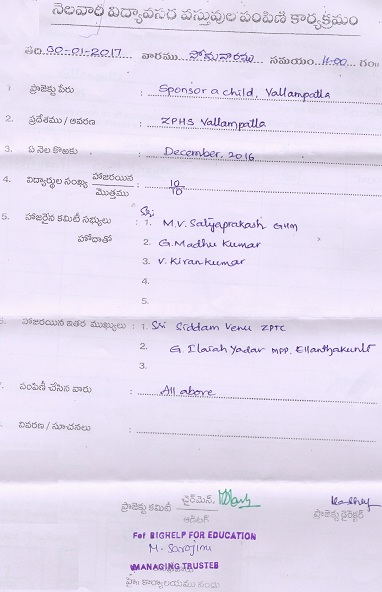 నెలవారీ విద్యావసర వస్తువుల పంపిణీ కార్యక్రమం
తేది 30-01-2017 వారము సోమవారము సమయం 11-00 గం॥
1. ప్రాజెక్టు పేరు : Sponsor a child, Vallampatla
2. ప్రదేశము / ఆవరణ : ZPHS Vallampatla
3. ఏ నెల కొఱకు : December, 2016
4. విద్యార్థుల సంఖ్య హాజరయిన / మొత్తము : 10/10
5. హాజరైన కమిటీ సభ్యులు హోదాతో : Sri; 1. M.V. Satyaprakash GHM
2. G. Madhu Kumar
3. V. Kiran kumar
4.
5.
6. హాజరయిన ఇతర ముఖ్యులు : 1. Sri Siddam Venu ZPTC
2. G. Ilaiah Yadav MPP. Ellanthakunta
3.
7. పంపిణీ చేసిన వారు : All above
వివరణ / సూచనలు :
ప్రాజెక్టు కమిటీ ఛైర్మెన్, ఆడిటర్
ప్రాజెక్టు డైరెక్టర్
For BIGHELP FOR EDUCATION
M. Sarojini
MANAGING TRUSTEE
కార్యాలయము నందు